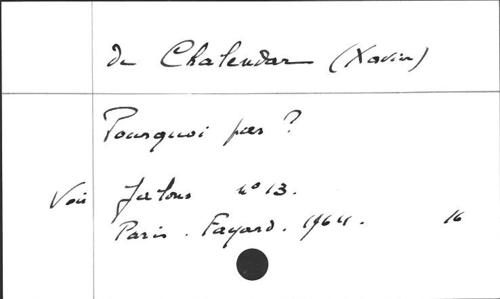 de Chalendar (Xavier)
Pourquoi pas ?
Voir Jalons n° 13.
Paris. Fayard. 1964. 16